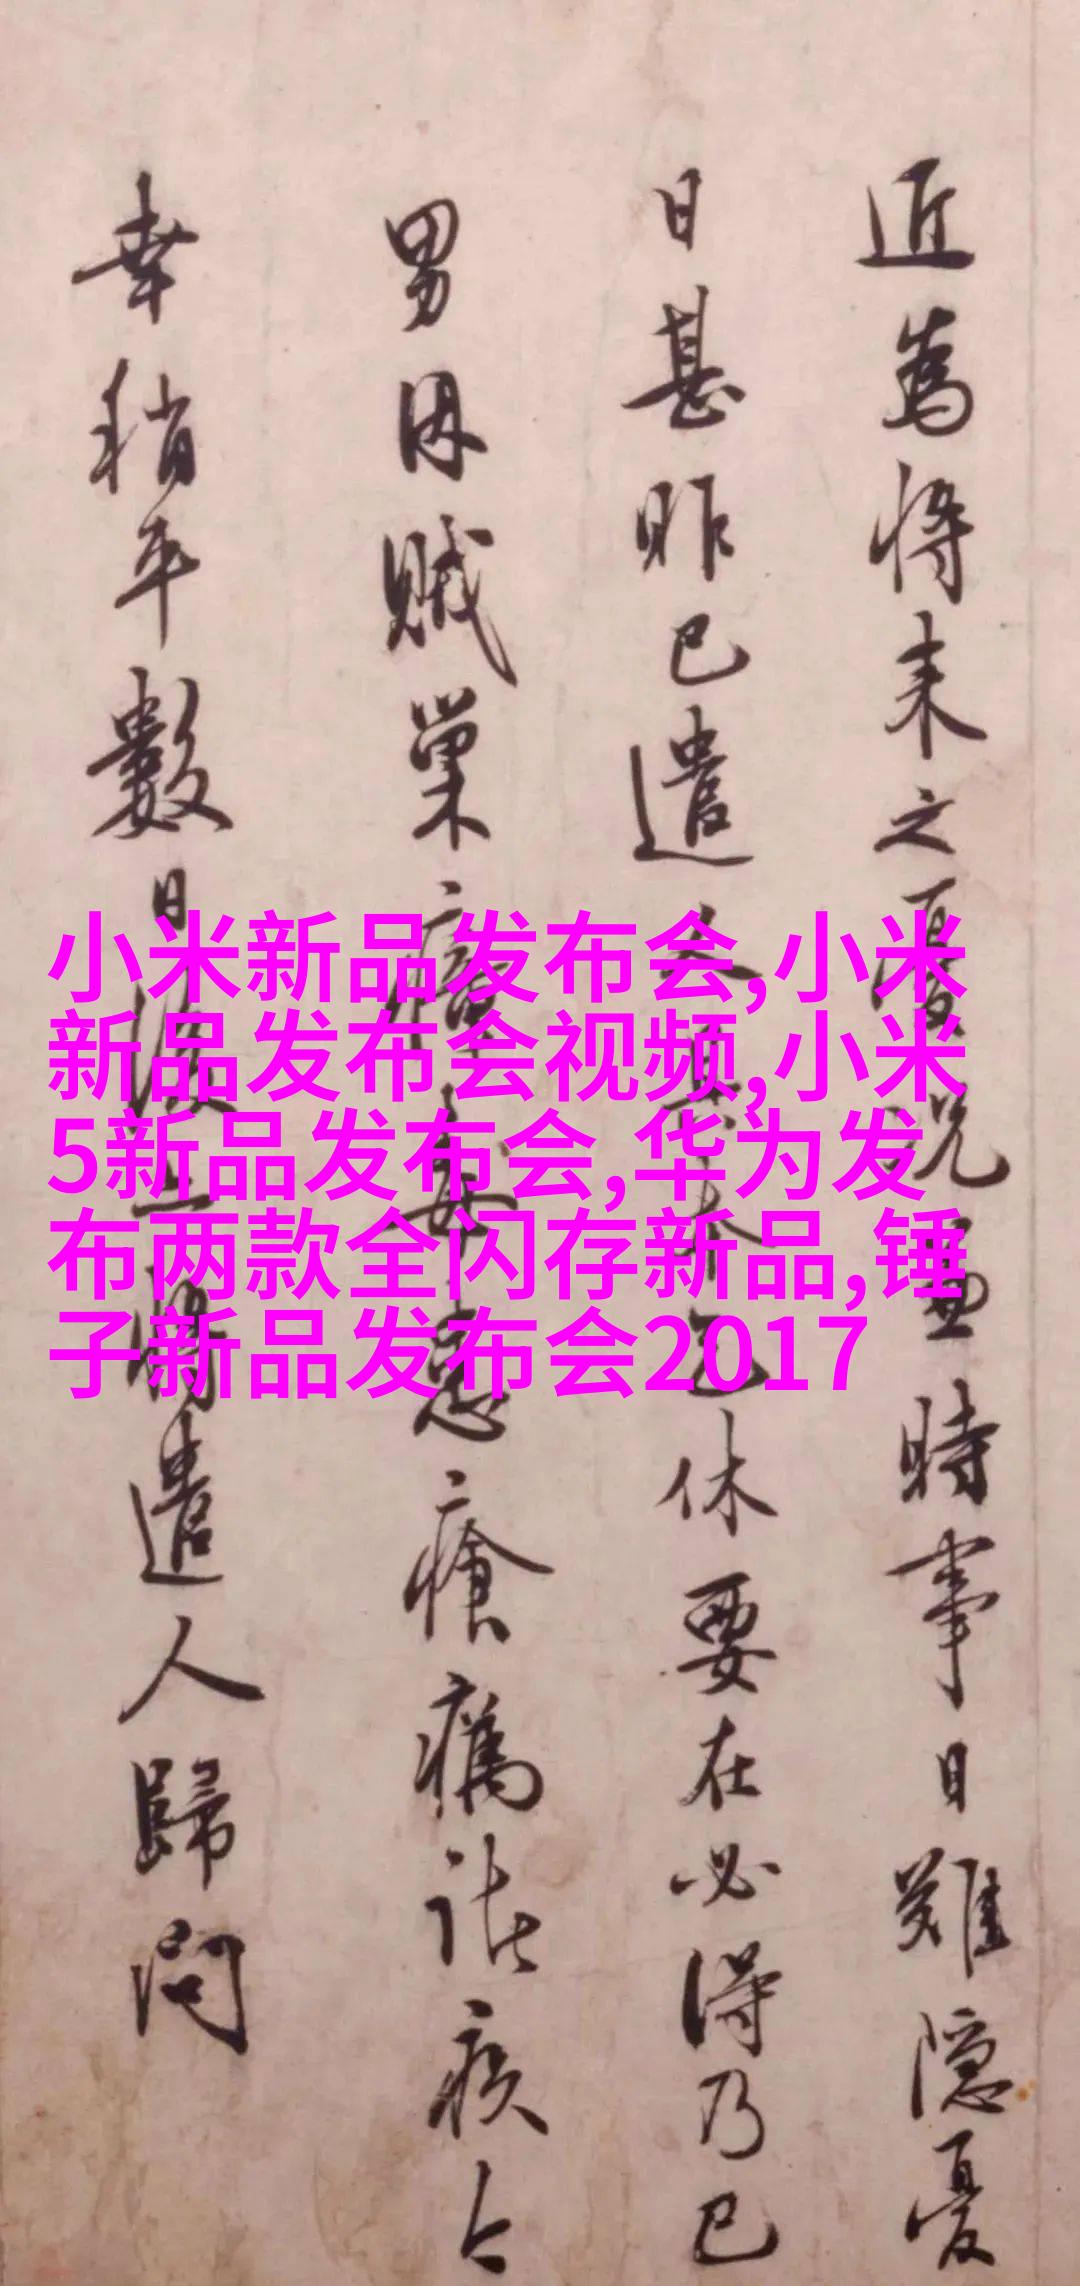 近為將来之憂況時事日難隱憂
日甚昨已遣人具本乞休要在必得乃已
男因賊巢瘴毒患瘡癘諸疾今
幸稍平數日後將遣人歸問
小米新品发布会,小米
新品发布会视频,小米
5新品发布会,华为发
布两款全闪存新品,锤
子新品发布会2017